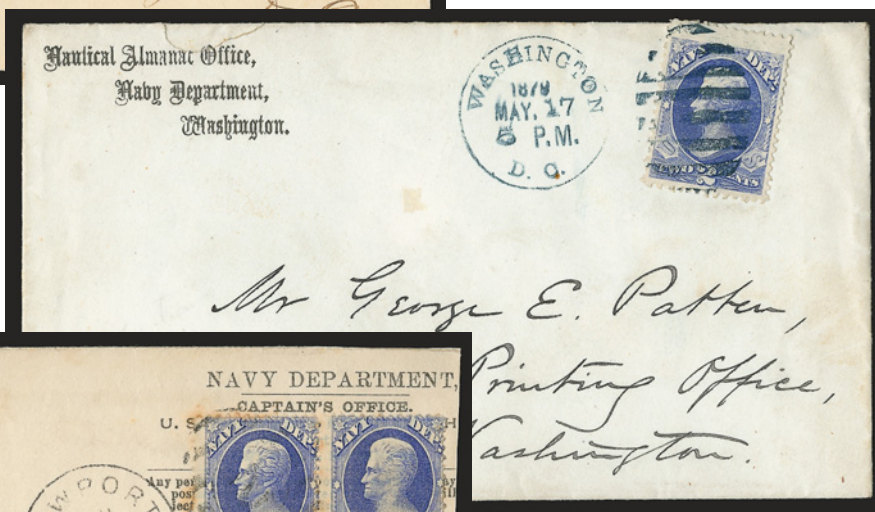 Nautical Almanac Office,
Navy Department,
Washington.
WASHINGTON
1879
MAY. 17
5 P.M.
D. C.
NAVY DEP'T.
U S
TWO 2 CENTS
Mr George E. Patten,
Printing Office,
Washington.
NAVY DEPARTMENT,
CAPTAIN'S OFFICE.
U. S.
NAVY DEP
NAVY DEP
Any per
post
WPORT